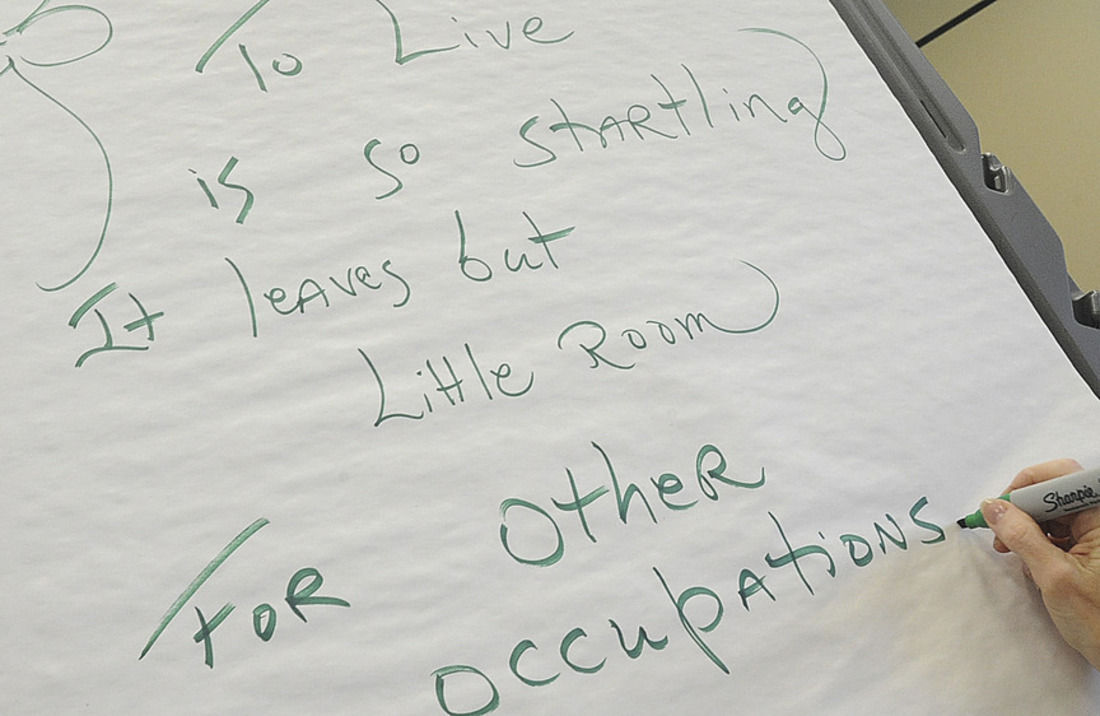 To Live
is so stARtling
It leaves but
Little Room
FOR Other
occupAtioNS
Sharpie